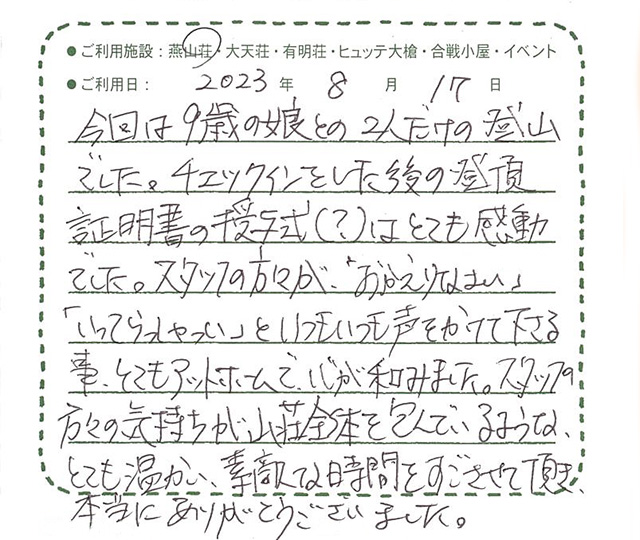 ●ご利用施設:燕山荘・大天荘・有明荘・ヒュッテ大槍・合戦小屋・イベント
●ご利用日: 2023 年 8 月 17 日
今回は9歳の娘との2人だけの登山
でした。チェックインをした後の登頂
証明書の授与式(?)はとても感動
でした。スタッフの方々が、「おかえりなさい」
「いってらっしゃい」といつもいつも声をかけて下さる
事、とてもアットホームで、心が和みました。スタッフの
方々の気持ちが、山荘全体を包んでいるような、
とても温かい、素敵な時間をすごさせて頂き、
本当にありがとうございました。